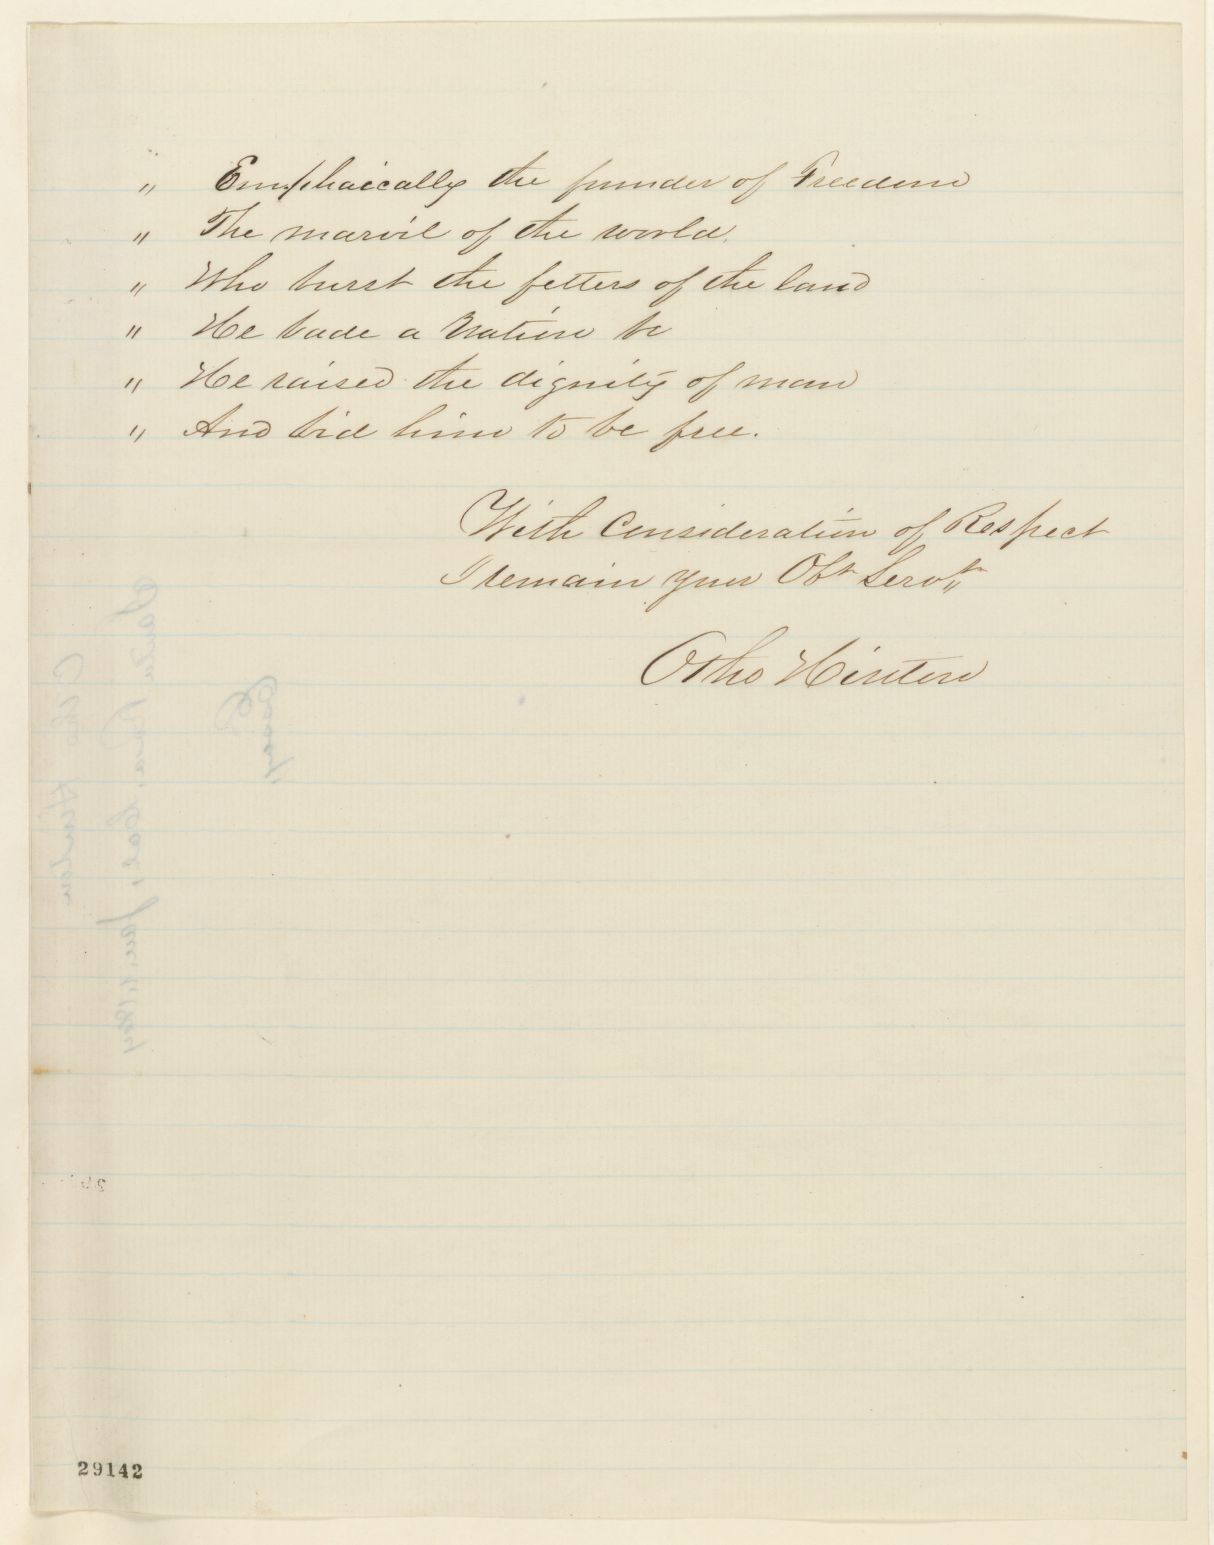 " Emphaically the founder of Freedom
" The marvil of the world.
" Who burst the fetters of the land
" He bade a Nation be
" He raised the dignity of man
" And bid him to be free.
With Consideration of Respect
I remain your Obt Servt"
Otho Hinton
29142